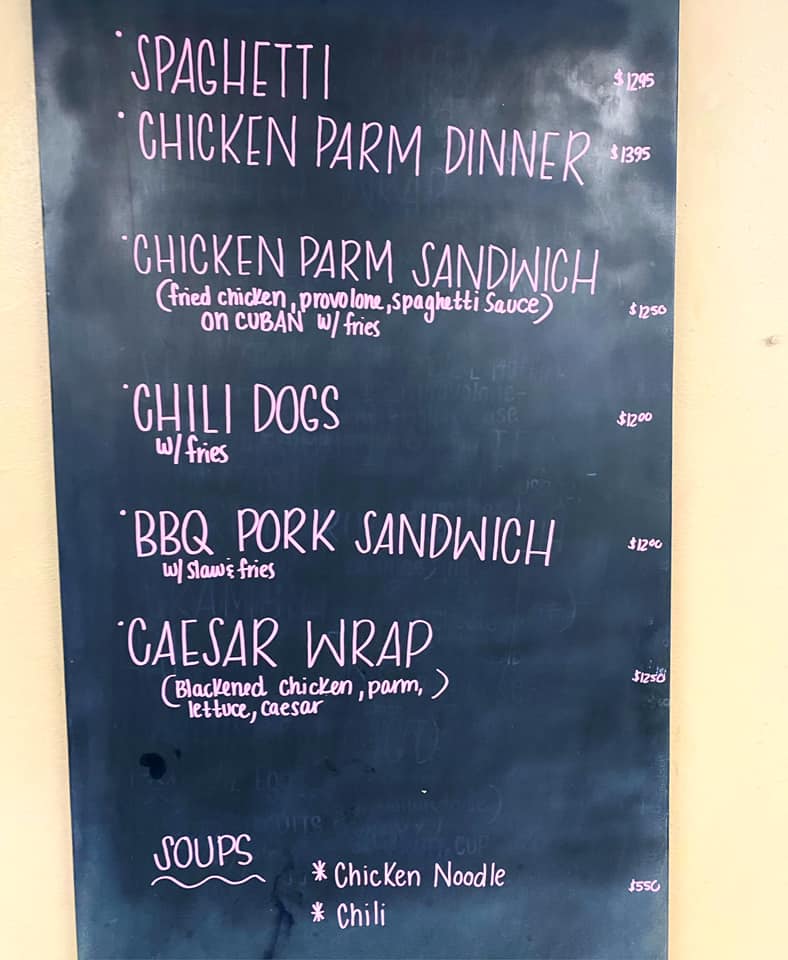 • SPAGHETTI $1295
• CHICKEN PARM DINNER $1395
• CHICKEN PARM SANDWICH
(fried chicken, provolone, spaghetti Sauce)
on CUBAN w/ fries $1250
• CHILI DOGS $1200
w/ fries
• BBQ PORK SANDWICH $1200
w/ Slaw & fries
• CAESAR WRAP
(Blackened chicken, parm, ) $1250
lettuce, caesar
SOUPS
* Chicken Noodle $550
* Chili